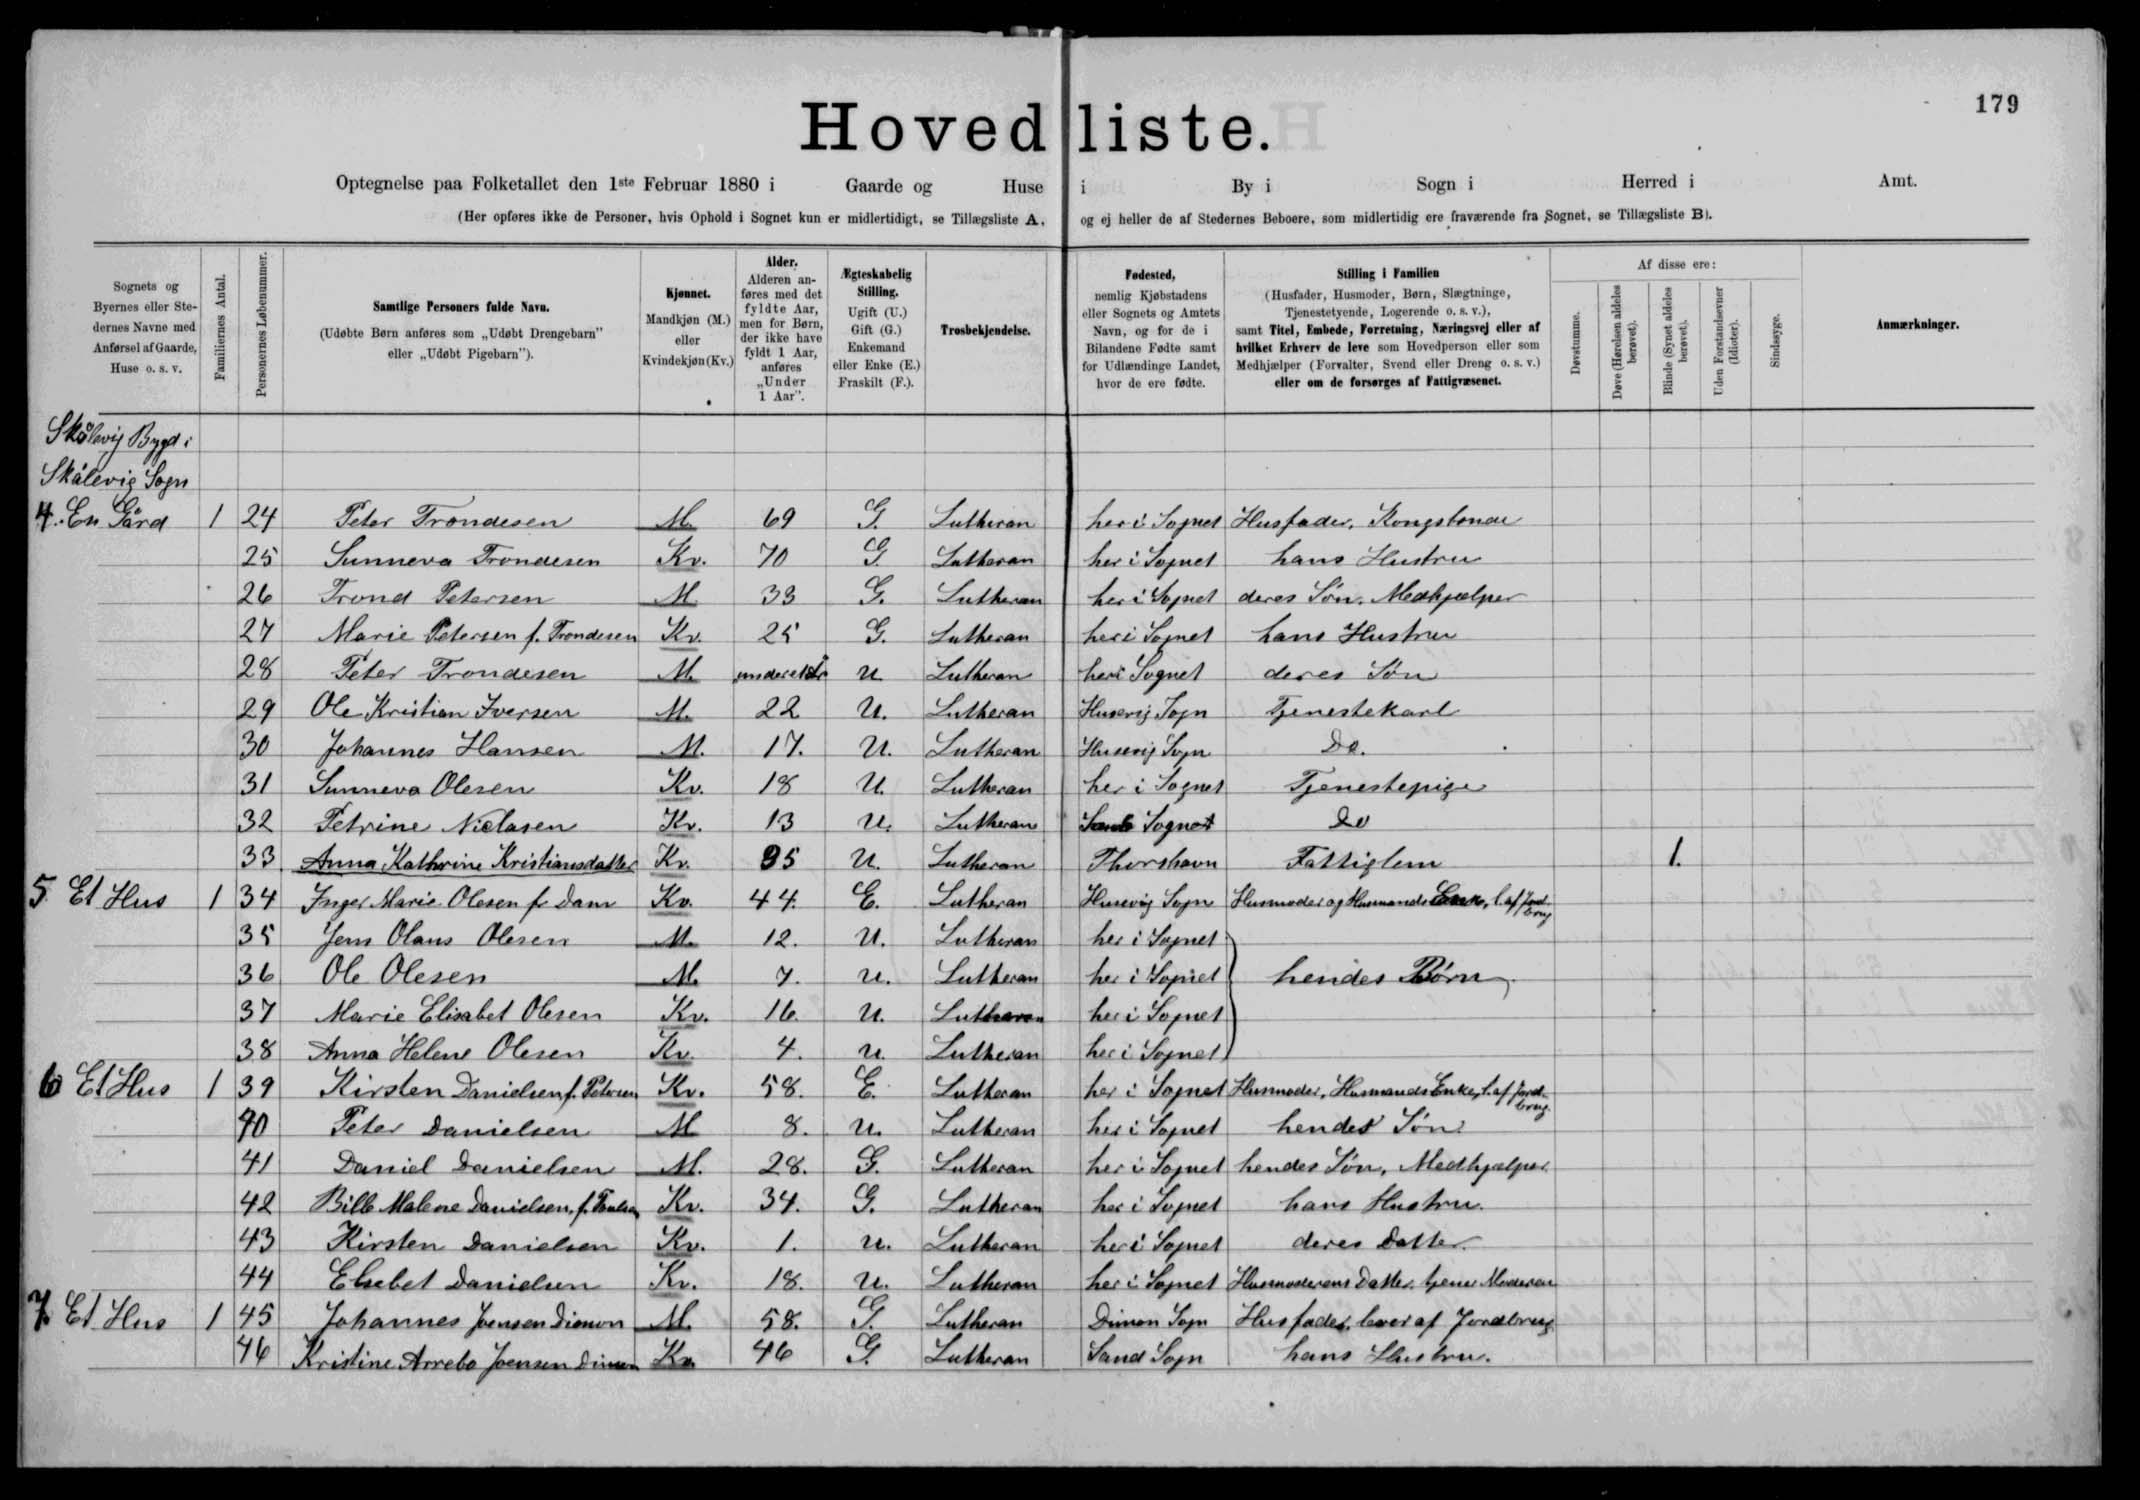 179
Hovedliste.
Optegnelse paa Folketallet den 1ste Februar 1880 i Gaarde og Huse i By i Sogn i Herred i Amt.
(Her opføres ikke de Personer, hvis Ophold i Sognet kun er midlertidigt, se Tillægsliste A, og ej heller de af Stedernes Beboere, som midlertidig ere fraværende fra Sognet, se Tillægsliste B).
Sognets og
Byernes eller Ste-
dernes Navne med
Anførsel af Gaarde,
Huse o. s. v.
Familiernes Antal.
Personernes Løbenummer.
Samtlige Personers fulde Navn.
(Udøbte Børn anføres som „Udøbt Drengebarn"
eller „Udøbt Pigebarn").
Kjønnet.
Mandkjøn (M.)
eller
Kvindekjøn (Kv.)
Alder.
Alderen an-
føres med det
fyldte Aar,
men for Børn,
der ikke have
fyldt 1 Aar,
anføres
„Under
1 Aar".
Ægteskabelig
Stilling.
Ugift (U.)
Gift (G.)
Enkemand
eller Enke (E.)
Fraskilt (F.).
Trosbekjendelse.
Fødested,
nemlig Kjøbstadens
eller Sognets og Amtets
Navn, og for de i
Bilandene Fødte samt
for Udlændinge Landet,
hvor de ere fødte.
Stilling i Familien
(Husfader, Husmoder, Børn, Slægtninge,
Tjenestetyende, Logerende o. s. v.),
samt Titel, Embede, Forretning, Næringsvej eller af
hvilket Erhverv de leve som Hovedperson eller som
Medhjælper (Forvalter, Svend eller Dreng o. s. v.)
eller om de forsørges af Fattigvæsenet.
Af disse ere:
Døvstumme.
Døve (Hørelsen aldeles
berøvet).
Blinde (Synet aldeles
berøvet).
Uden Forstandsevner
(Idioter).
Sindssyge.
Anmærkninger.
Skålevig Bygd i
Skålevig Sogn
4. En Gård 1 24 Peter Trondesen M. 69 G. Lutheran her i Sognet Husfader, Kongsbonde
25 Sunneva Trondesen Kv. 70 G. Lutheran her i Sognet hans Hustru
26 Trond Petersen M 33 G. Lutheran her i Sognet deres Søn, Medhjælper
27 Marie Petersen f. Trondesen Kv. 25 G. Lutheran her i Sognet hans Hustru
28 Peter Trondesen M. under et år U Lutheran her i Sognet deres Søn
29 Ole Kristian Iversen M. 22 U. Lutheran Husevig Sogn Tjenestekarl
30 Johannes Hansen M. 17. U. Lutheran Husevig Sogn Do.
31 Sunneva Olesen Kv. 18 U. Lutheran her i Sognet Tjenestepige
32 Petrine Nielasen Kv. 13 U. Lutheran Sands Sognet Do
33 Anna Kathrine Kristiansdatter Kv. 85 U. Lutheran Thorshavn Fattiglem 1.
5. Et Hus 1 34 Inger Marie Olesen f. Dam Kv. 44. E. Lutheran Husevig Sogn Husmoder og Husmands Enke, l. af Jord-
brug
35 Jens Olaus Olesen M. 12. U. Lutheran her i Sognet
36 Ole Olesen M. 7. U. Lutheran her i Sognet hendes Børn
37 Marie Elisabet Olesen Kv. 16 U. Lutheran her i Sognet
38 Anna Helene Olesen Kv. 4. U. Lutheran her i Sognet
6 Et Hus 1 39 Kirsten Danielsen f. Petersen Kv. 58. E. Lutheran her i Sognet Husmoder, Husmands Enke, l. af Jord-
brug.
40 Peter Danielsen M 8. U. Lutheran her i Sognet hendes Søn
41 Daniel Danielsen M. 28. G. Lutheran her i Sognet hendes Søn, Medhjælper
42 Bille Malene Danielsen, f. Kv. 34. G. Lutheran her i Sognet hans Hustru.
43 Kirsten Danielsen Kv. 1. U. Lutheran her i Sognet deres Datter.
44 Elsebet Danielsen Kv. 18. U. Lutheran her i Sognet Husmoderens Datter, tjener Moderen
7. Et Hus 1 45 Johannes Joensen Dimon M. 58. G. Lutheran Dimon Sogn Husfader, lever af Jordbrug
46 Kristine Arrebo Joensen Dimon Kv. 46 G. Lutheran Sand Sogn hans Hustru.